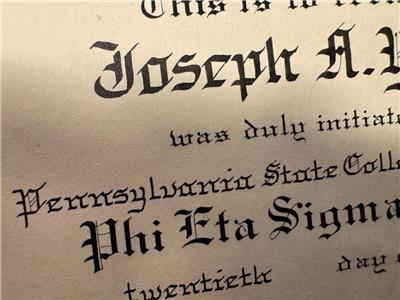 This is to
Joseph A.
was duly initiate
Pennsylvania State Colle
Phi Eta Sigma
twentieth day